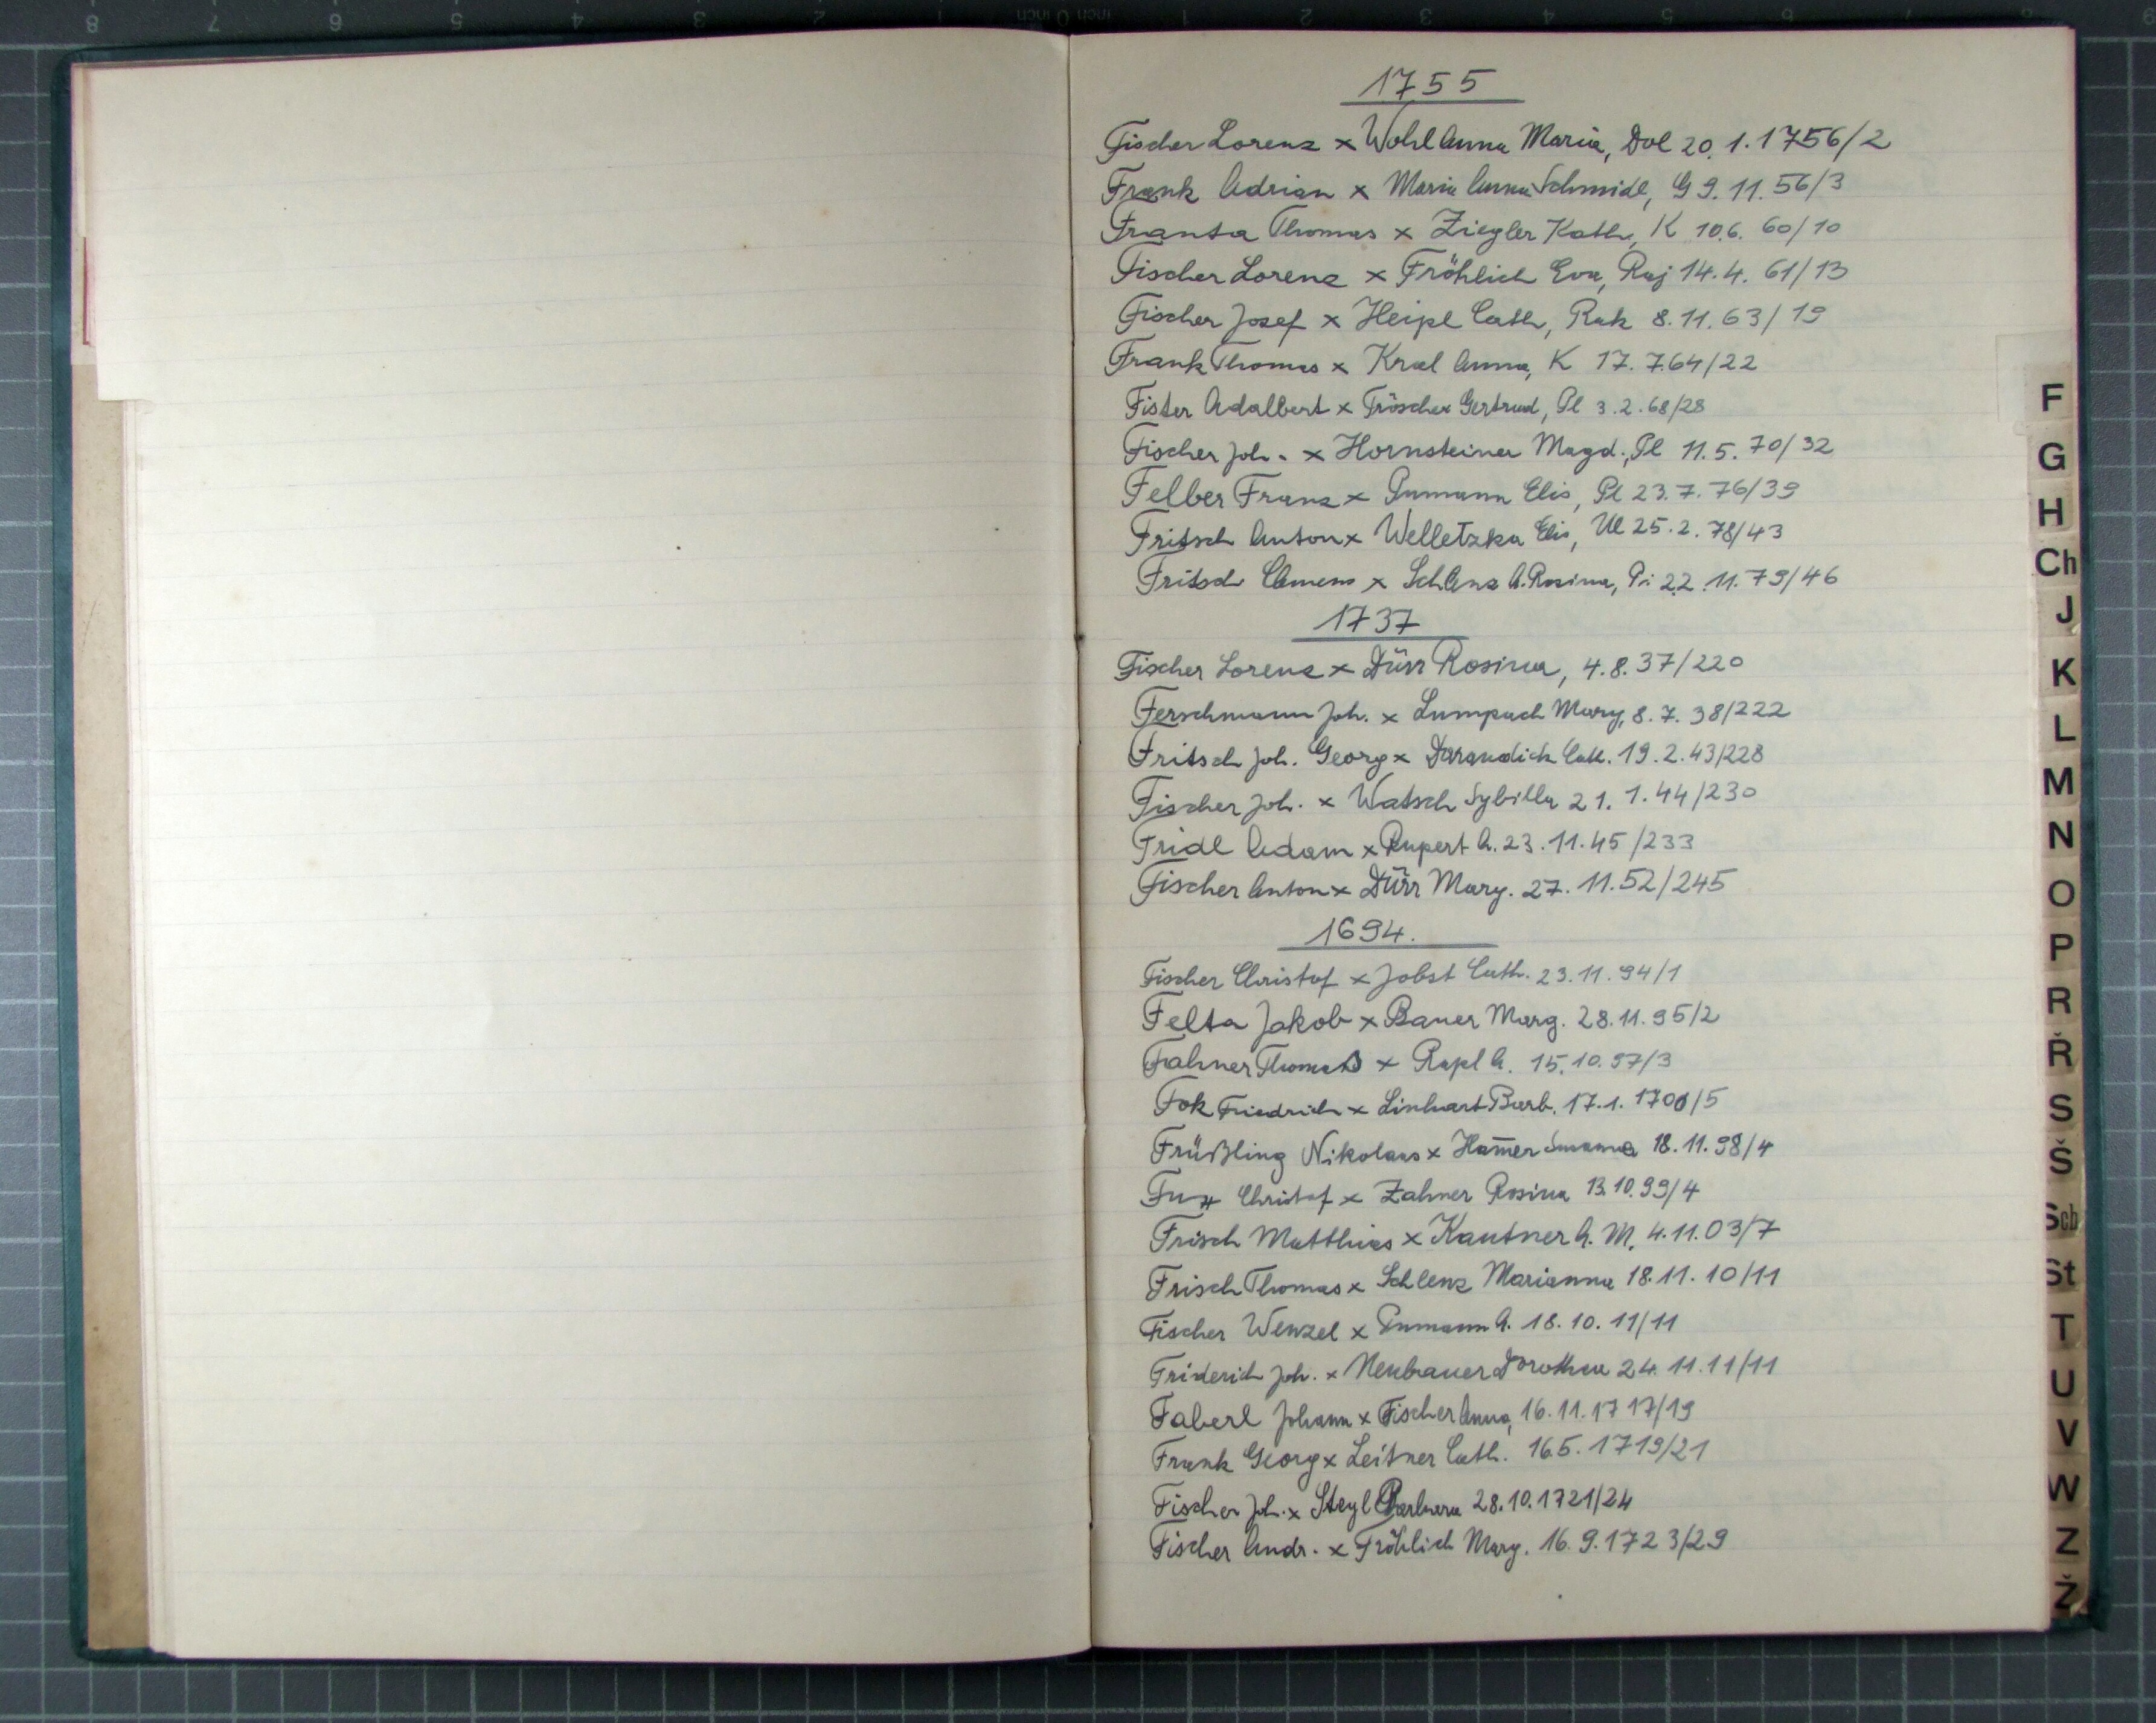 8 7 6 5 4 3 2 1 inch 0 inch 1 2 3 4 5 6 7 8 9
1755
Fischer Lorenz x Wohl Anna Maria, Dol 20. 1. 1756/2
Frank Adrian x Maria Anna Schmidl, G 9. 11. 56/3
Franta Thomas x Ziegler Kath, K 10.6. 60/10
Fischer Lorenz x Fröhlich Eva, Raj 14. 4. 61/13
Fischer Josef x Heipl Cath, Rak 8. 11. 63/19
Frank Thomas x Kral Anna, K 17. 7.64/22
Fister Adalbert x Fröscher Gertrud, Pl 3. 2. 68/28
Fischer Joh. x Hornsteiner Magd., Pl 11. 5. 70/32
Felber Franz x Pumann Elis, Pl 23. 7. 76/39
Fritsch Anton x Welletzka Elis, Ul 25. 2. 78/43
Fritsch Clemens x Schlenz A. Rosina, Pi 22. 11. 79/46
1737
Fischer Lorenz x Dürr Rosina, 4. 8. 37/220
Ferschmann Joh. x Lumpach Marg, 8. 7. 38/222
Fritsch Joh. Georg x Cath. 19. 2. 43/228
Fischer Joh. x Watsch Sybilla 21. 1. 44/230
Fridl Adam x Rupert A. 23. 11. 45/233
Fischer Anton x Dürr Marg. 27. 11. 52/245
1694.
Fischer Christof x Jobst Cath. 23. 11. 94/1
Felta Jakob x Bauer Marg. 28. 11. 95/2
Fahner Thomas x Rapl A. 15. 10. 97/3
Fok Friedrich x Linhart Barb. 17. 1. 1700/5
Früßling Nikolaus x Ham̄er Susanna 18. 11. 98/4
Fux Christof x Zahner Rosina 13. 10. 99/4
Frisch Matthias x Kautner A. M. 4. 11. 03/7
Frisch Thomas x Schlenz Marianna 18. 11. 10/11
Fischer Wenzel x Pumann A. 18. 10. 11/11
Friderich Joh. x Neubauer Dorothea 24. 11. 11/11
Faberl Johann x Fischer Anna, 16. 11. 1717/19
Frank Georg x Leitner Cath. 16 5. 1719/21
Fischer Joh. x Steyl Barbara 28. 10. 1721/24
Fischer Andr. x Fröhlich Marg. 16. 9. 1723/29
F
G
H
Ch
J
K
L
M
N
O
P
R
Ř
S
Š
Sch
St
T
U
V
W
Z
Ž